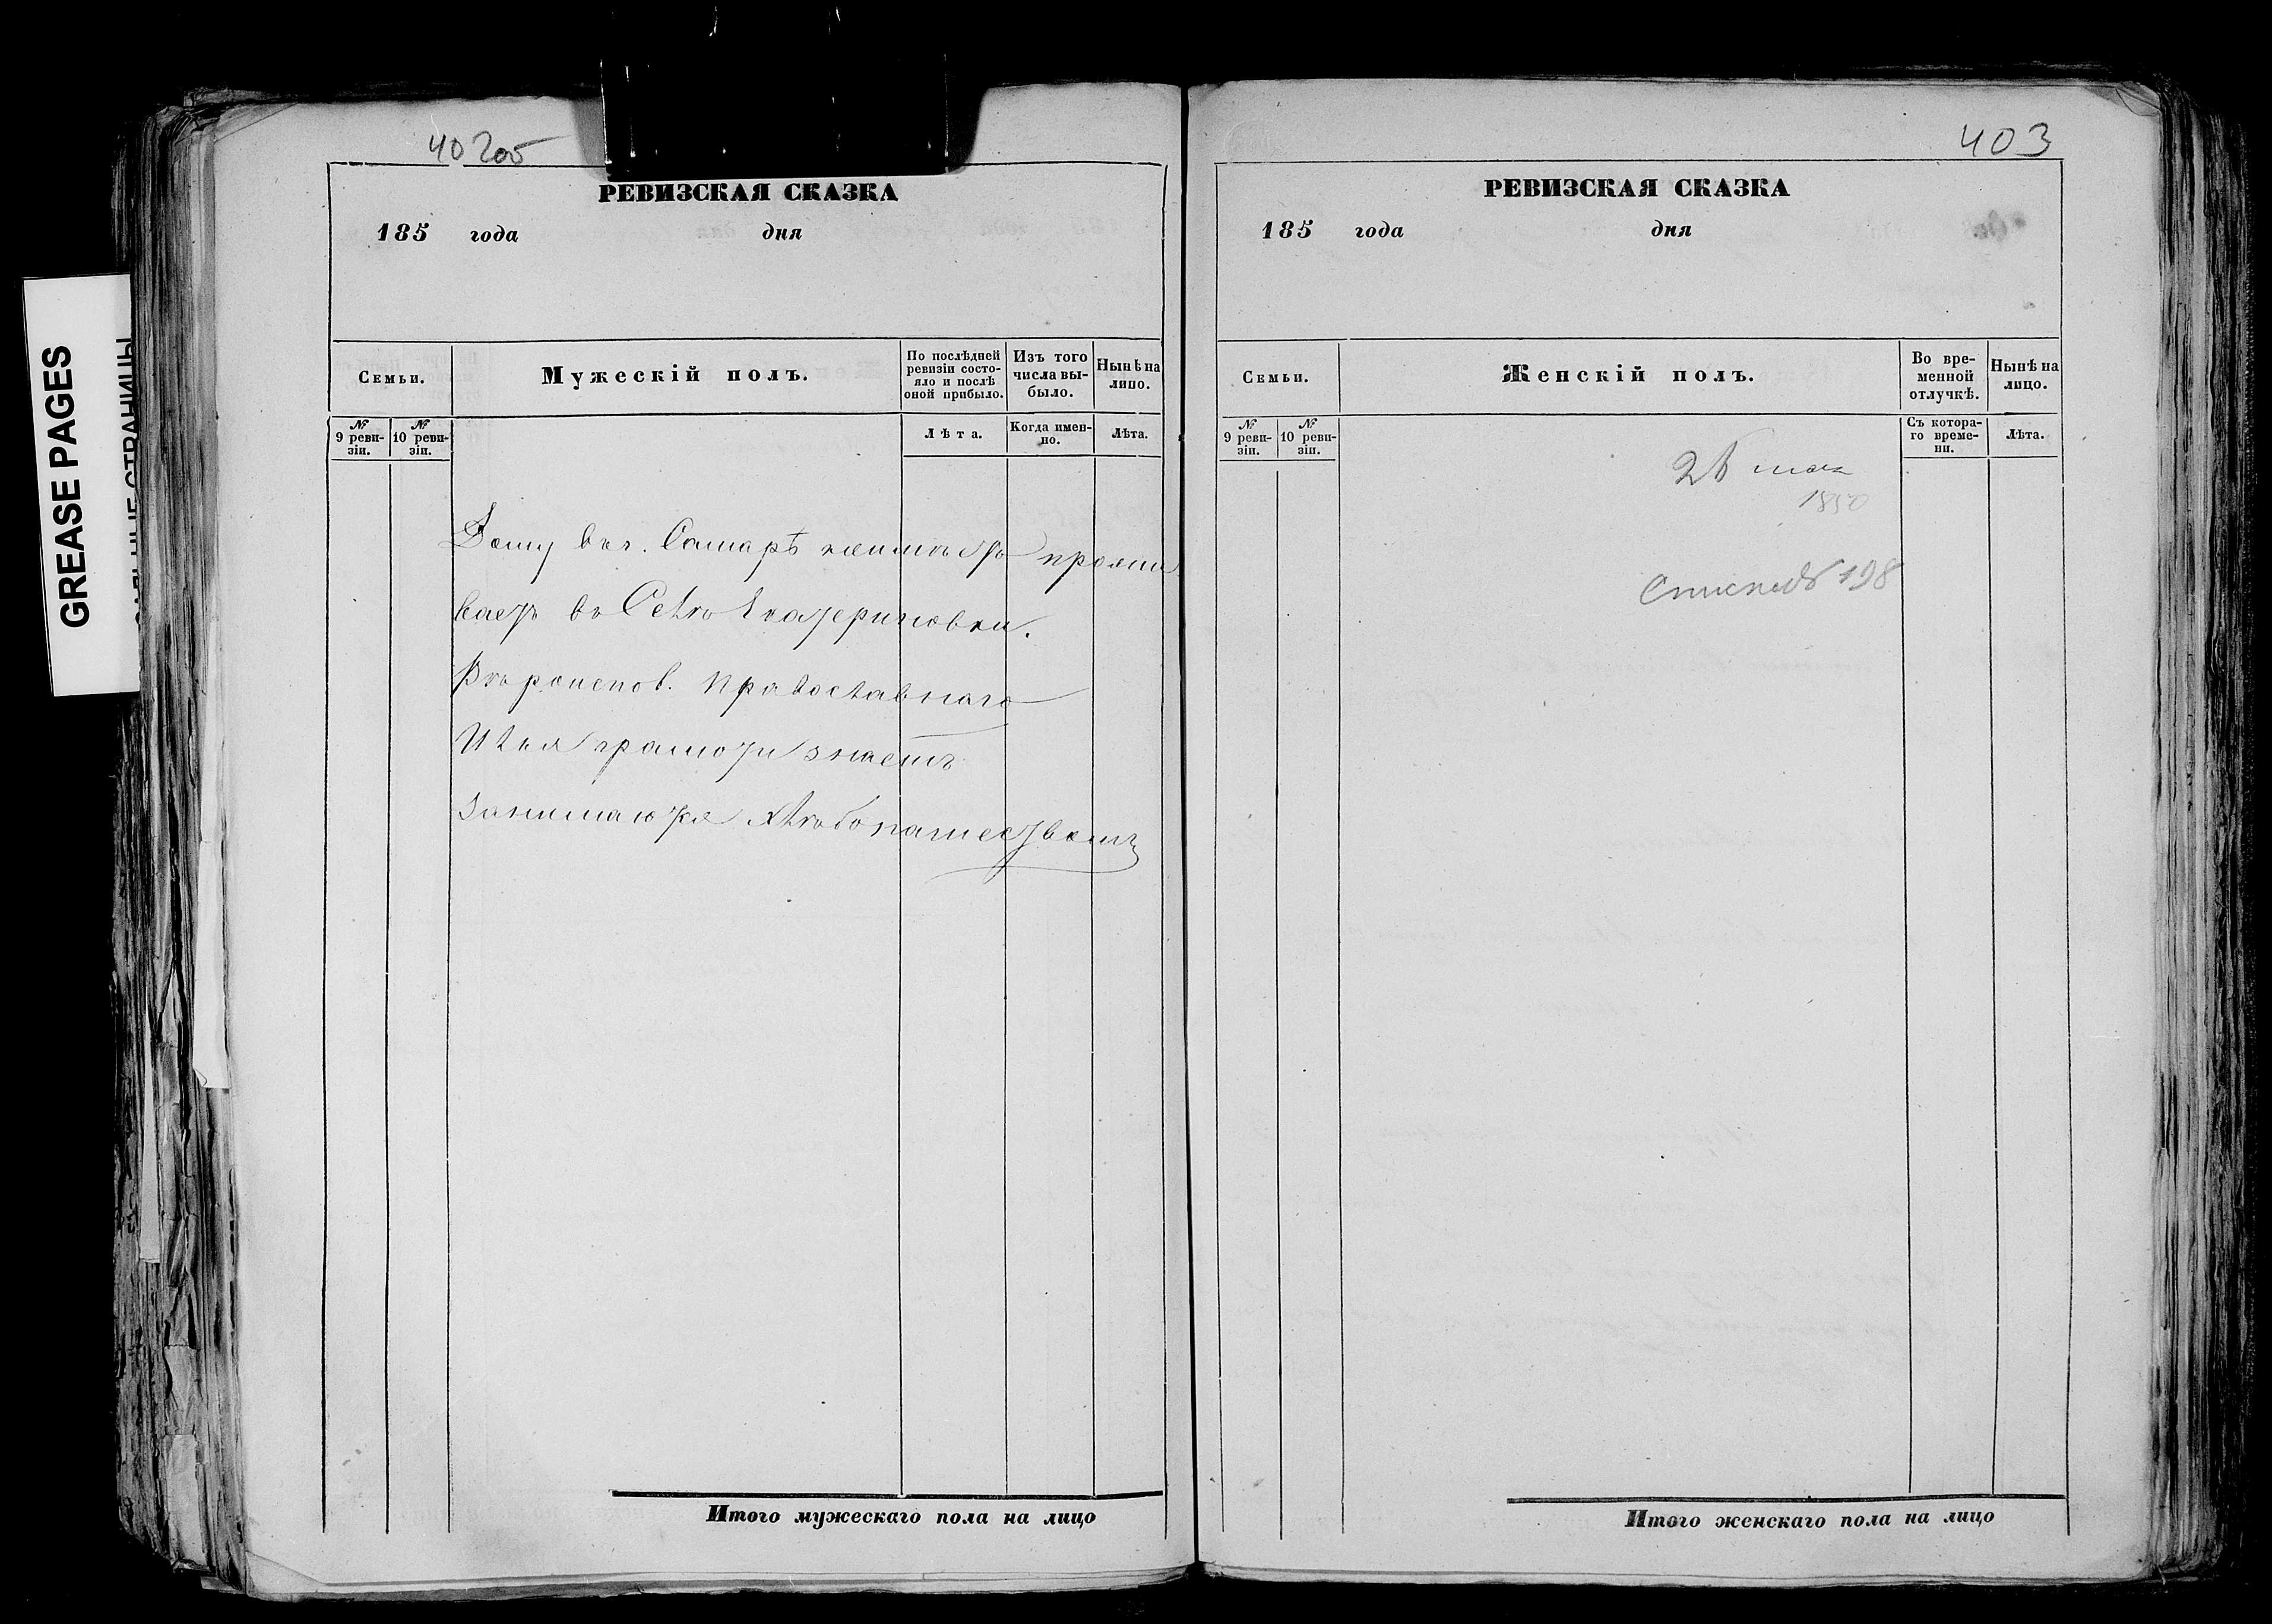 GREASE PAGES
402об
РЕВИЗСКАЯ СКАЗКА
185 года дня
Семьи.
Мужескій полъ.
По послѣдней ревизіи состояло и послѣ оной прибыло.
Изъ того числа выбыло.
Нынѣ на лицо.
№ 9 ревизіи.
№ 10 ревизіи.
Лѣта.
Когда именно.
Лѣта.
Дому въ г. Самарѣ неимѣетъ прожи
ваетъ въ Селѣ Екатериновки.
Вѣроиспов. Православнаго
Илья грамоти знаетъ
занимаются хлѣбопашествомъ
Итого мужескаго пола на лицо
403
РЕВИЗСКАЯ СКАЗКА
185 года дня
Семьи.
Женскій полъ.
Во временной отлучкѣ.
Нынѣ на лицо.
№ 9 ревизіи.
№ 10 ревизіи.
Съ котораго времени.
Лѣта.
1850
198
Итого женскаго пола на лицо